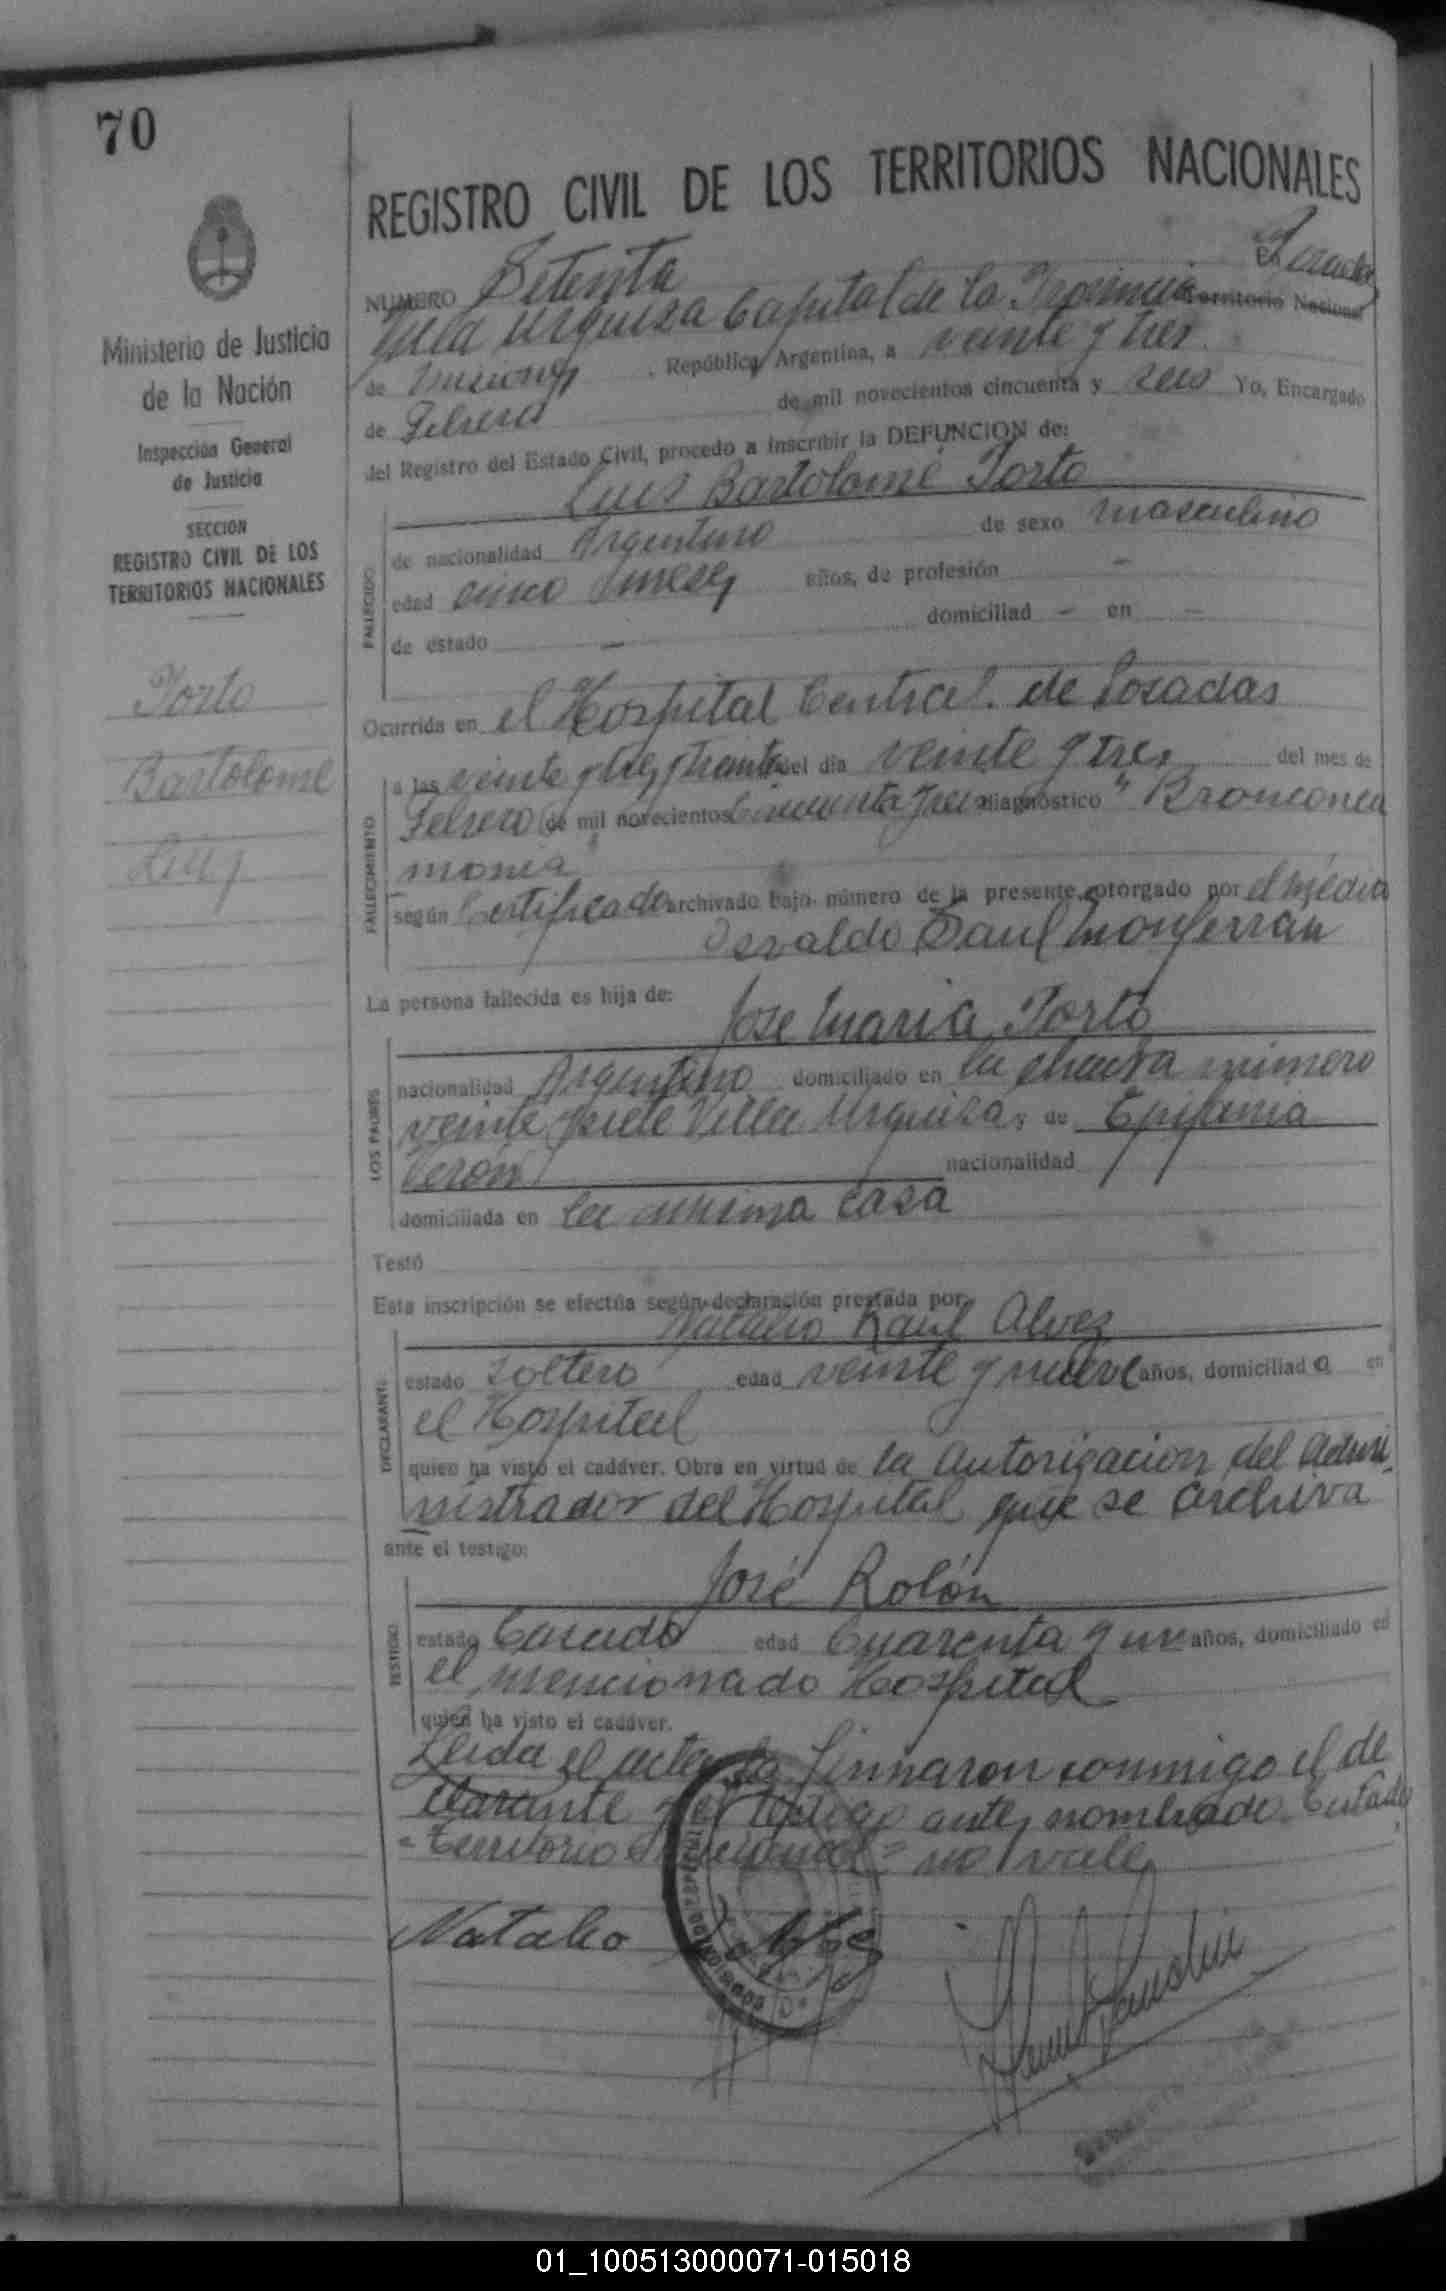 70
REGISTRO CIVIL DE LOS TERRITORIOS NACIONALES
Ministerio de Justicia
de la Nación
Inspección General
de Justicia
SECCION
REGISTRO CIVIL DE LOS
TERRITORIOS NACIONALES
Porto
Bartolome
Luis
NUMERO Setenta En Posadas
Villa Urquiza Capital de la Provincia Territorio Nacional
de Misiones, República Argentina, a veinte y tres
de Febrero de mil novecientos cincuenta y seis Yo, Encargado
del Registro del Estado Civil, procedo a inscribir la DEFUNCION de:
Luis Bartolomé Porto
FALLECIDO
de nacionalidad Argentino de sexo masculino
edad cinco meses años, de profesión -
de estado - domiciliad - en -
Ocurrida en el Hospital Central de Posadas
FALLECIMIENTO
a las veinte y tres y treinta del día veinte y tres del mes de
Febrero de mil novecientos Cincuenta y seis diagnóstico "Bronconeu
monia"
según Certificado archivado bajo número de la presente otorgado por el médico
Osvaldo Saul Monferran
La persona fallecida es hija de:
José Maria Porto
LOS PADRES
nacionalidad Argentino domiciliado en la chacra número
veinte y siete Villa Urquiza y de Epifania
Verón nacionalidad
domiciliada en la misma casa
Testó
Esta inscripción se efectúa según declaración prestada por
Natalio Raul Alvez
DECLARANTE
estado soltero edad veinte y nueve años, domiciliado en
el Hospital
quien ha visto el cadáver. Obra en virtud de la autorización del Admi-
nistrador del Hospital que se archiva
ante el testigo:
José Rolón
TESTIGO
estado Casado edad Cuarenta y un años, domiciliado en
el mencionado Hospital
quien ha visto el cadáver.
Leida el acta la firmaron conmigo el de
clarante y el testigo antes nombrado. Testado
"Territorio Nacional" no vale
Natalio
01_100513000071-015018